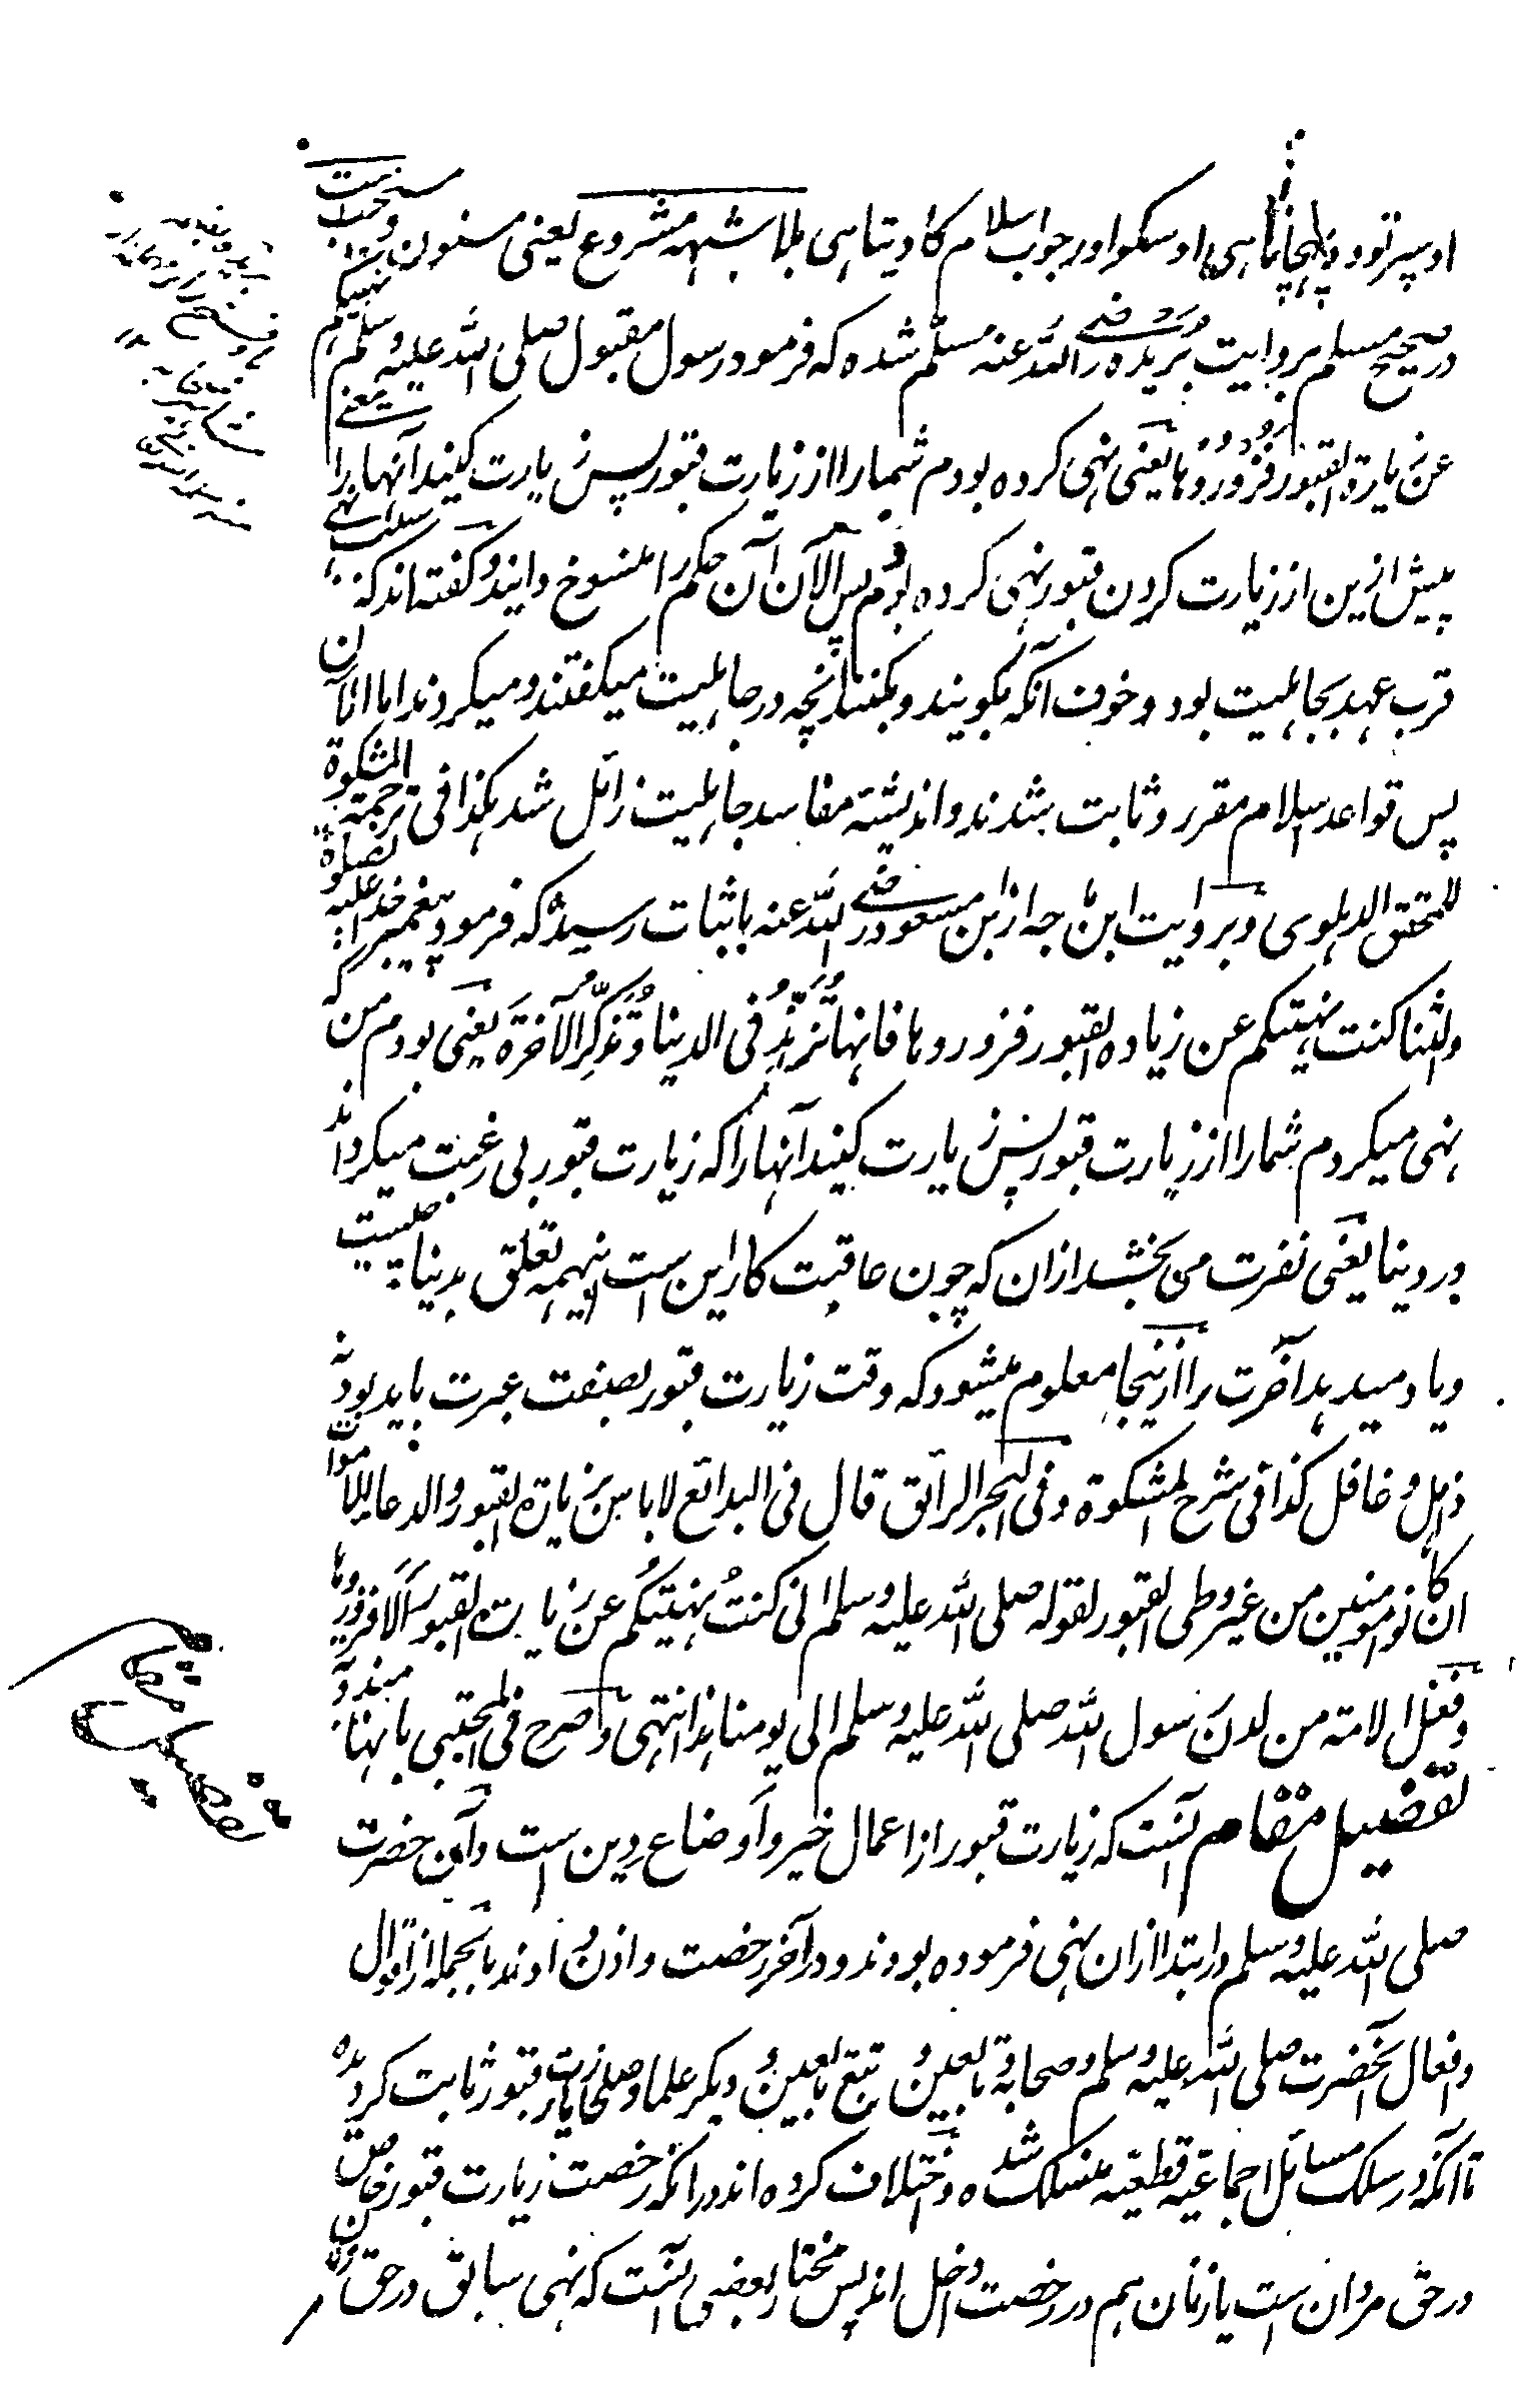 اوسپر تو وہ پہچانتا ہی اوسکو اور جواب سلام کا دیتا ہی بلا شبہہ مشروع یعنی مسنون و مستحب است
در صحیح مسلم بروایت بریدہ رضی اللہ عنہ مسلّم شدہ کہ فرمود رسول مقبول صلی اللہ علیہ وسلم نہیتکم
عن زیارۃ القبور فزوروہا یعنی نہی کردہ بودم شمارا از زیارت قبور پس زیارت کنید آنہا را یعنے
پیش ازین از زیارت کردن قبور نہی کردہ بودم پس الآن آن حکم را منسوخ دانید و گفتہ اند کہ سبب نہے
قرب عہد بجاہلیت بود و خوف آنکہ بگویند و بکنند آنچہ در جاہلیت میگفتند و میکردند اما الآن
پس قواعد اسلام مقرر و ثابت شدند و اندیشۂ مفاسد جاہلیت زائل شد ہکذا فی ترجمۃ المشکوۃ
للمحقق الدہلوی و بروایت ابن ماجہ از ابن مسعود رضی اللہ عنہ باثبات رسیدہ کہ فرمود پیغمبر خدا علیہ الصلوۃ
والثنا کنت نہیتکم عن زیارہ القبور فزوروہا فانہا تزہد فی الدنیا و تذکر الآخرۃ یعنی بودم من کہ
نہی میکردم شمارا از زیارت قبور پس زیارت کنید آنہا را کہ زیارت قبور بی رغبت میگرداند
در دنیا یعنی نفرت می بخشد ازان کہ چون عاقبت کار این است اینہمہ تعلق بدنیا چیست
و یاد میدہد آخرت را ازینجا معلوم میشود کہ وقت زیارت قبور بصفت عبرت باید بود نہ
ذاہل و غافل کذا فی شرح المشکوۃ و فی البحر الرائق قال فی البدائع لا باس بزیارۃ القبور والدعا للاموات
ان کانو مومنین من غیر وطی القبور لقولہ صلی اللہ علیہ وسلم انی کنت نہیتکم عن زیارت القبور الا فزوروہا
و فعل الامۃ من لدن رسول اللہ صلی اللہ علیہ وسلم الی یومنا ہذا انتہی و صرح فی المجتبی بانہا مندوبۃ
تفصیل مقام آنست کہ زیارت قبور از اعمال خیر و اوضاع دین است و آن حضرت
صلی اللہ علیہ وسلم در ابتدا ازان نہی فرمودہ بودند و در آخر رخصت و اذن دادند بالجملہ از اقوال
و افعال آنحضرت صلی اللہ علیہ وسلم و صحابہ و تابعین و تبع تابعین و دیگر علما و صلحا زیارت قبور ثابت گردیدہ
تا آنکہ در سلک مسائل اجماعیہ قطعیہ منسلک شدہ و اختلاف کردہ اند در آنکہ رخصت زیارت قبور خاص
در حق مردان است یا زنان ہم در رخصت داخل اند پس مختار بعضی آنست کہ نہی سابق در حق
تفصیل مقام